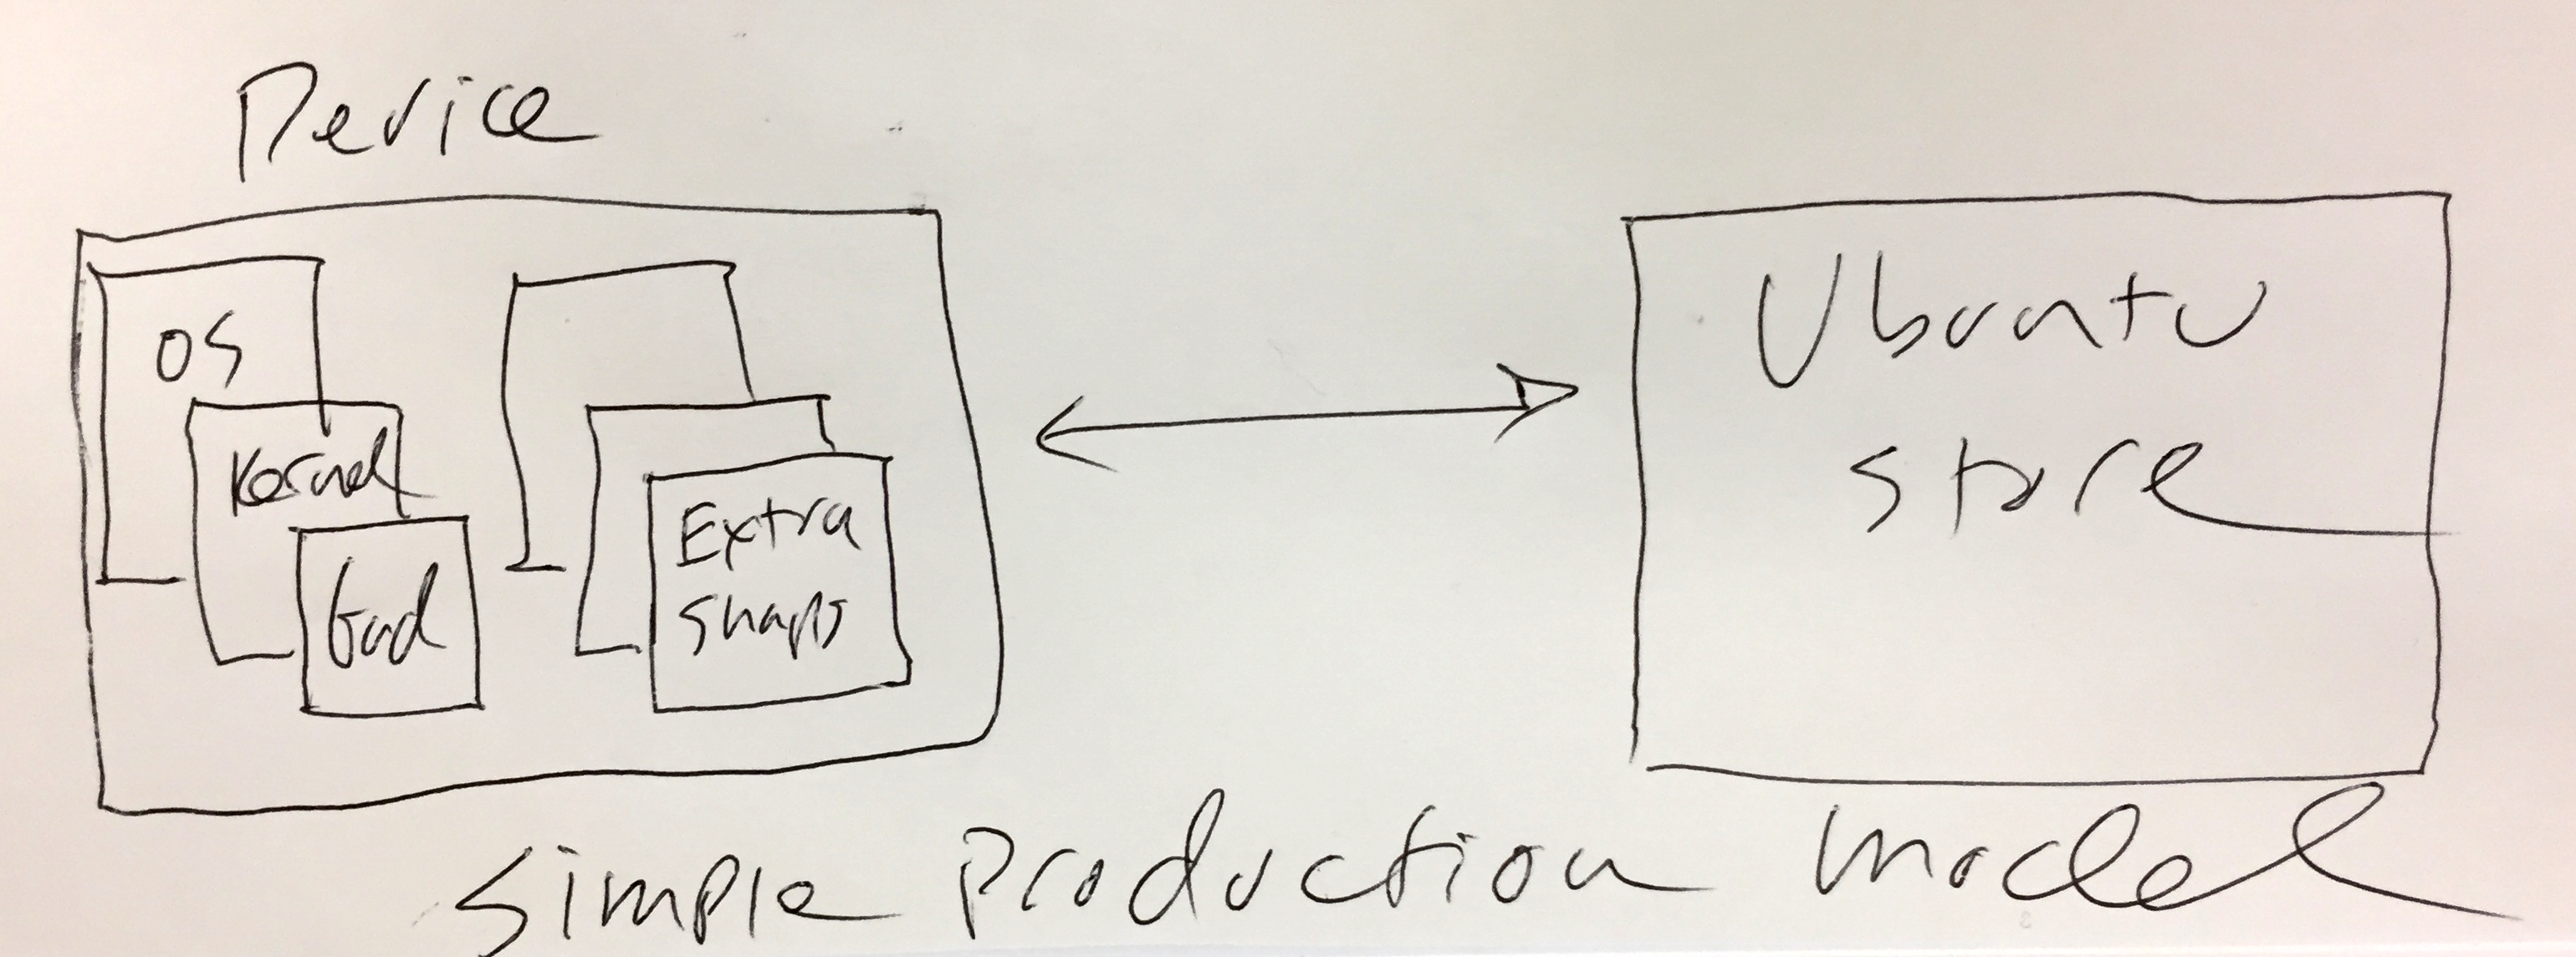 Device
OS
Kernel
Gad
Extra
snaps
Ubuntu
store
Simple Production Model